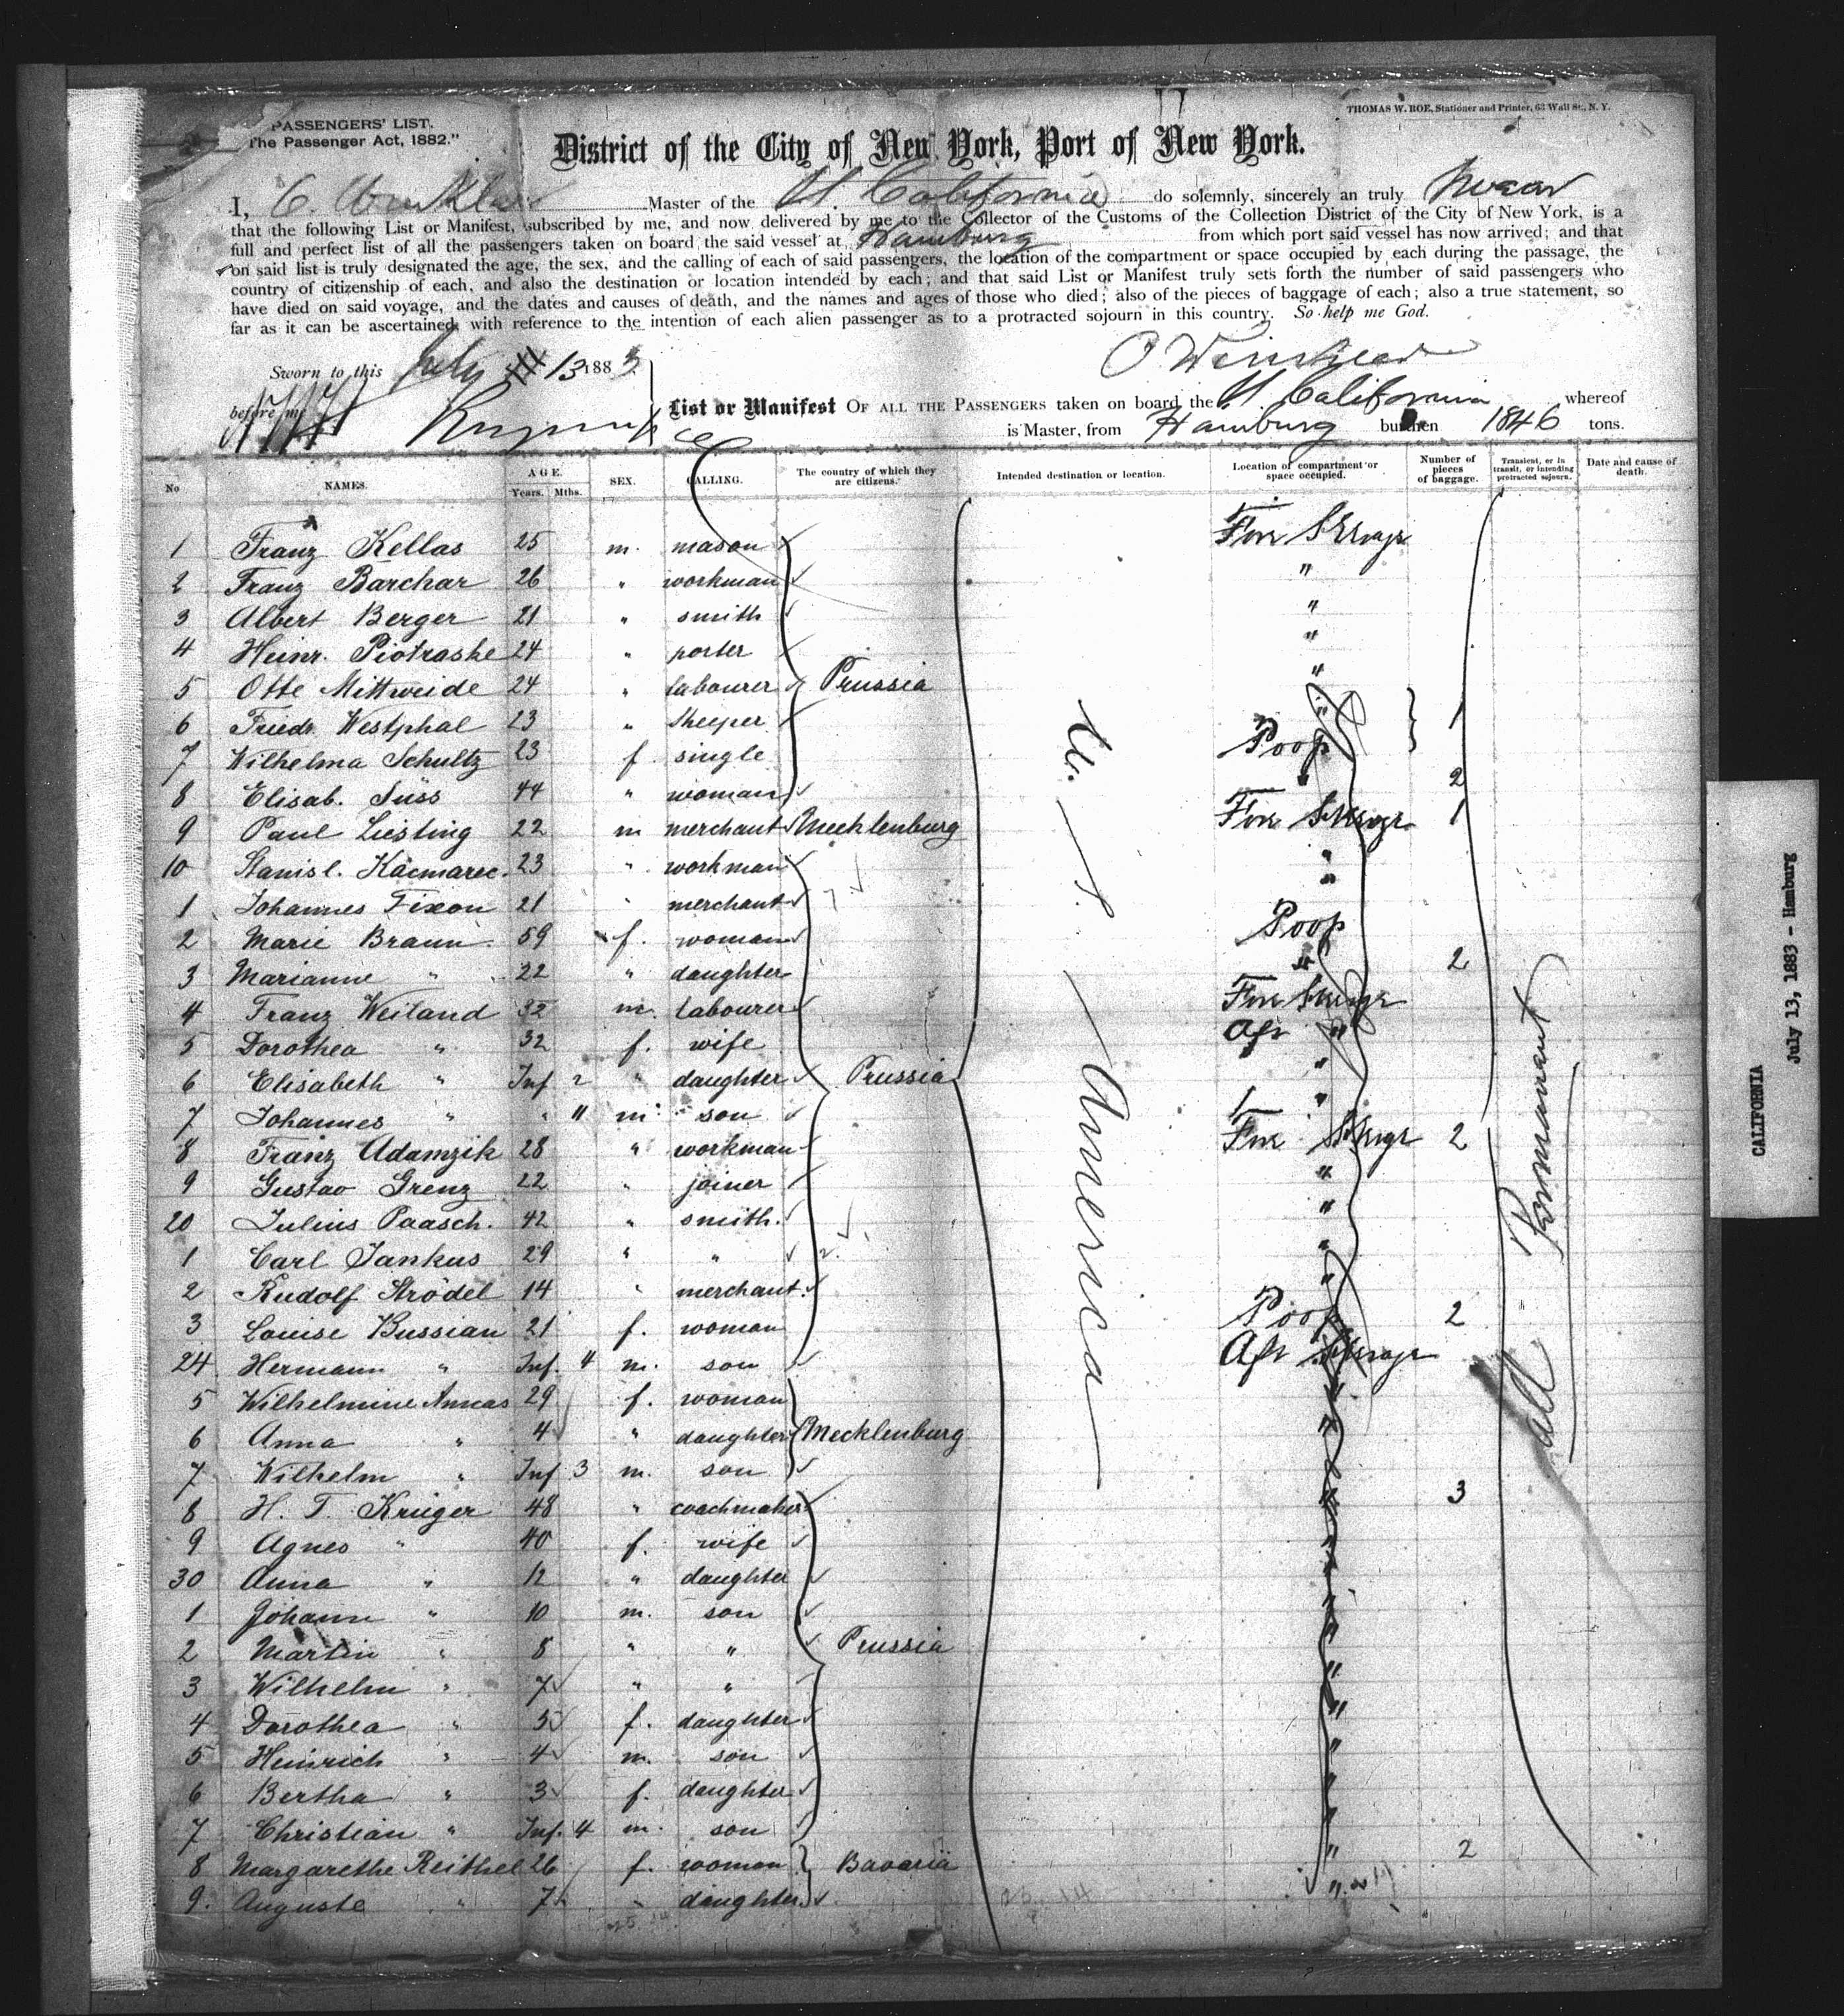 PASSENGERS' LIST.
The Passenger Act, 1882."
THOMAS W. ROE, Stationer and Printer, 63 Wall St., N. Y.
District of the City of New York, Port of New York.
I, C. Master of the California do solemnly, sincerely an truly swear
that the following List or Manifest, subscribed by me, and now delivered by me to the Collector of the Customs of the Collection District of the City of New York, is a
full and perfect list of all the passengers taken on board the said vessel at Hamburg from which port said vessel has now arrived; and that
on said list is truly designated the age, the sex, and the calling of each of said passengers, the location of the compartment or space occupied by each during the passage, the
country of citizenship of each, and also the destination or location intended by each; and that said List or Manifest truly sets forth the number of said passengers who
have died on said voyage, and the dates and causes of death, and the names and ages of those who died; also of the pieces of baggage of each; also a true statement, so
far as it can be ascertained, with reference to the intention of each alien passenger as to a protracted sojourn in this country. So help me God.
Sworn to this July 13 1883
before me
List or Manifest OF ALL THE PASSENGERS taken on board the California whereof
is Master, from Hamburg burthen 1846 tons.
No NAMES. AGE. Years. Mths. SEX. CALLING. The country of which they are citizens. Intended destination or location. Location of compartment or space occupied. Number of pieces of baggage. Transient, or in transit, or intending protracted sojourn. Date and cause of death.
1 Franz Kellas 25 m. mason Fore Steerage
2 Franz Barchar 26 " workman "
3 Albert Berger 21 " smith "
4 Heinr. Piotraske 24 " porter "
5 Otto Mittweide 24 " labourer Prussia "
6 Friedr. Westphal 23 " " 1
7 Wilhelma Schultz 23 f. single Poop
8 Elisab. Süss 44 " woman " 2
9 Paul Liesting 22 m merchant Mecklenburg Fore Steerage 1
10 Stanisl. Kacmarec. 23 " workman "
1 Johannes Fixon 21 " merchant "
2 Marie Braun 59 f. woman Poop
3 Marianne " 22 " daughter " 2
4 Franz Weiland 32 m. labourer Fore Steerage
5 Dorothea " 32 f. wife Aft "
6 Elisabeth " Inf 2 " daughter Prussia "
7 Johannes " " 11 m. son "
8 Franz Adamzik 28 " workman Fore Steerage 2
9 Gustav Grenz 22 " joiner "
20 Julius Paasch. 42 " smith. "
1 Carl Jankus 29 " " "
2 Rudolf Strödel 14 " merchant. "
3 Louise Bussian 21 f. woman Poop 2
24 Hermann " Inf. 4 m. son Aft Steerage
5 Wilhelmine Annas 29 f. woman "
6 Anna " 4 " daughter Mecklenburg "
7 Wilhelm " Inf 3 m. son
8 H. T. Krüger 48 " coachmaker " 3
9 Agnes " 40 f. wife "
30 Anna " 12 " daughter "
1 Johann " 10 m. son "
2 Martin " 8 " " Prussia "
3 Wilhelm " 7 " " "
4 Dorothea " 5 f. daughter "
5 Heinrich " 4 m. son "
6 Bertha " 3 f. daughter "
7 Christian " Inf. 4 m. son "
8 Margarethe Reithel 26 f. woman Bavaria " 2
9. Auguste " 7 " daughter. "
U. S. America
all Permanent
CALIFORNIA
July 13, 1883 - Hamburg